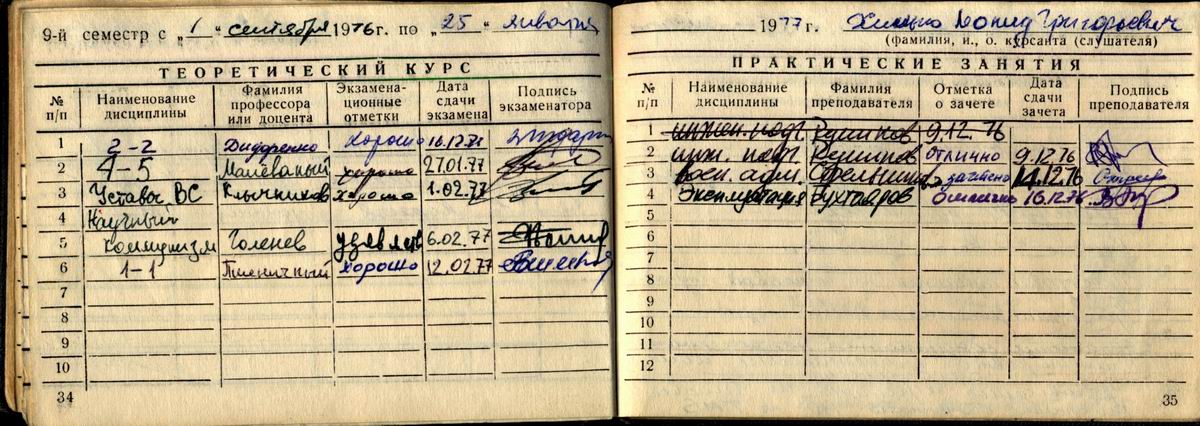 9-й семестр с „1“ сентября 1976 г. по „25“ января
ТЕОРЕТИЧЕСКИЙ КУРС
№ п/п Наименование дисциплины Фамилия профессора или доцента Экзамена-ционные отметки Дата сдачи экзамена Подпись экзаменатора
1 2-2 Дидоренко хорошо 16.12.76
2 4-5 Малеваный хорошо 27.01.77
3 Уставы ВС Ключников хорошо 1.02.77
4 Научный
5 коммунизм Голенев удовлетв 6.02.77
6 1-1 Пшеничный хорошо 12.02.77
7
8
9
10
34
1977 г. Леонид Григорьевич
(фамилия, и., о. курсанта (слушателя)
ПРАКТИЧЕСКИЕ ЗАНЯТИЯ
№ п/п Наименование дисциплины Фамилия преподавателя Отметка о зачете Дата сдачи зачета Подпись преподавателя
1 инжен. подг. 9.12.76
2 инж. подг. отлично 9.12.76
3 воен. адм. зачтено 14.12.76
4 Эксплуатация отлично 16.12.76
6
6
7
8
9
10
11
12
35